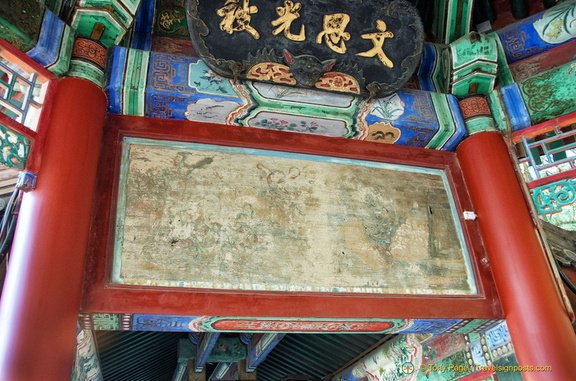 文思光被
© Tony Page / Travelsignposts.com